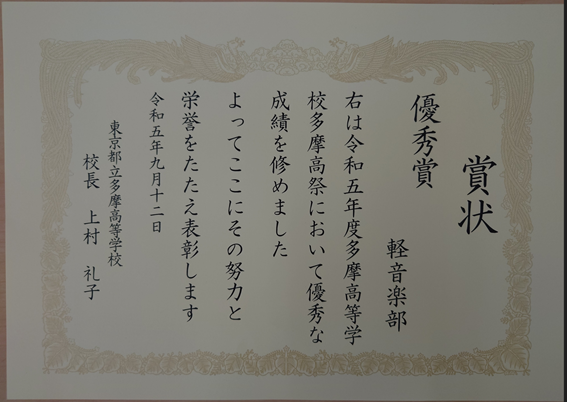 賞状
優秀賞
軽音楽部
右は令和五年度多摩高等学
校多摩高祭において優秀な
成績を修めました
よってここにその努力と
栄誉をたたえ表彰します
令和五年九月十二日
東京都立多摩高等学校
校長 上村 礼子